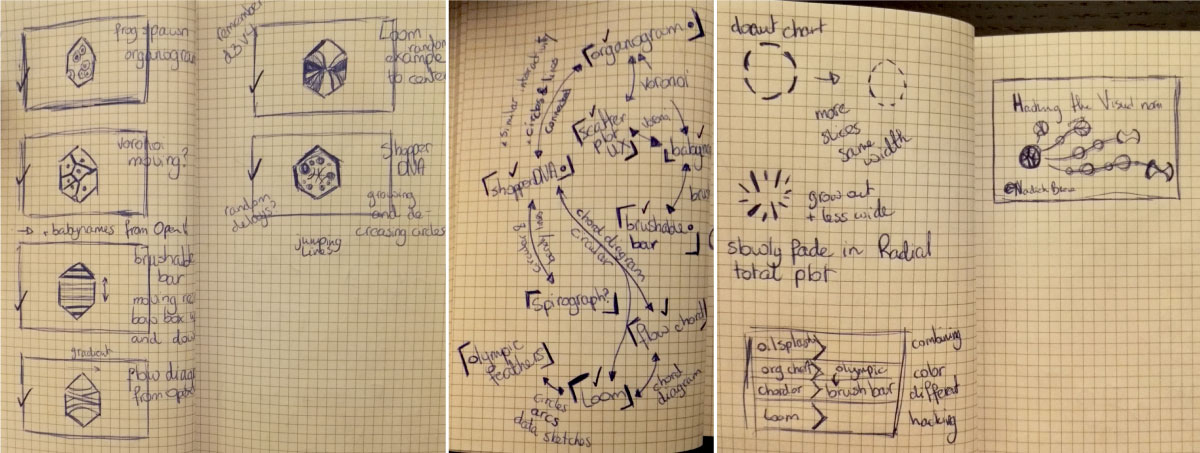 frog spawn
organogram
voronoi
moving?
→ + babynames from Open
brushable
bar
moving
box
and
gradient
flow
from
remember
d3v4
Loom
random
example
to
Shopper
DNA
random
delays?
growing
and de-
creasing circles
jumping
lines
organogram
voronoi
+ similar interactivity
+ circles & lines
connected
scatter
plot
UX
voronoi
shopperDNA
brushable
bar
chord diagram
circular
Spirograph?
flow chord
olympic
feathers
Loom
circles
arcs
data sketches
chord
diagram
donut chart
more
slices
same
width
grow out
+ less wide
slowly fade in Radial
total plot
oil splash
org chart
olympic
chord
brush bar
Loom
combining
color
different
hacking
Hacking the Visual norm
Nadieh Bremer